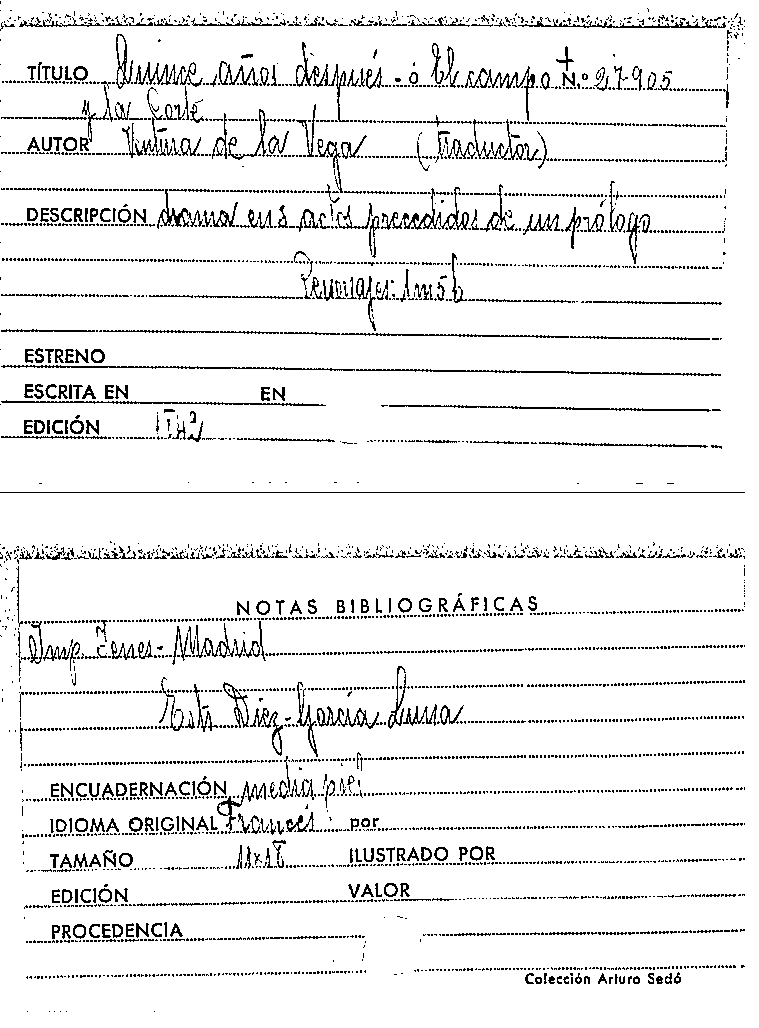 TÍTULO Quince años después - ó El campo N.º 27-905
y la Corte
AUTOR Ventura de la Vega (traductor)
DESCRIPCIÓN drama en 3 actos precedidos de un prólogo
Personajes: 1m5h
ESTRENO
ESCRITA EN EN
EDICIÓN
NOTAS BIBLIOGRÁFICAS
Imp. Yenes - Madrid
Diez - García Luna
ENCUADERNACIÓN media piel
IDIOMA ORIGINAL Francés por
TAMAÑO 11x18 ILUSTRADO POR
EDICIÓN VALOR
PROCEDENCIA
Colección Arturo Sedó